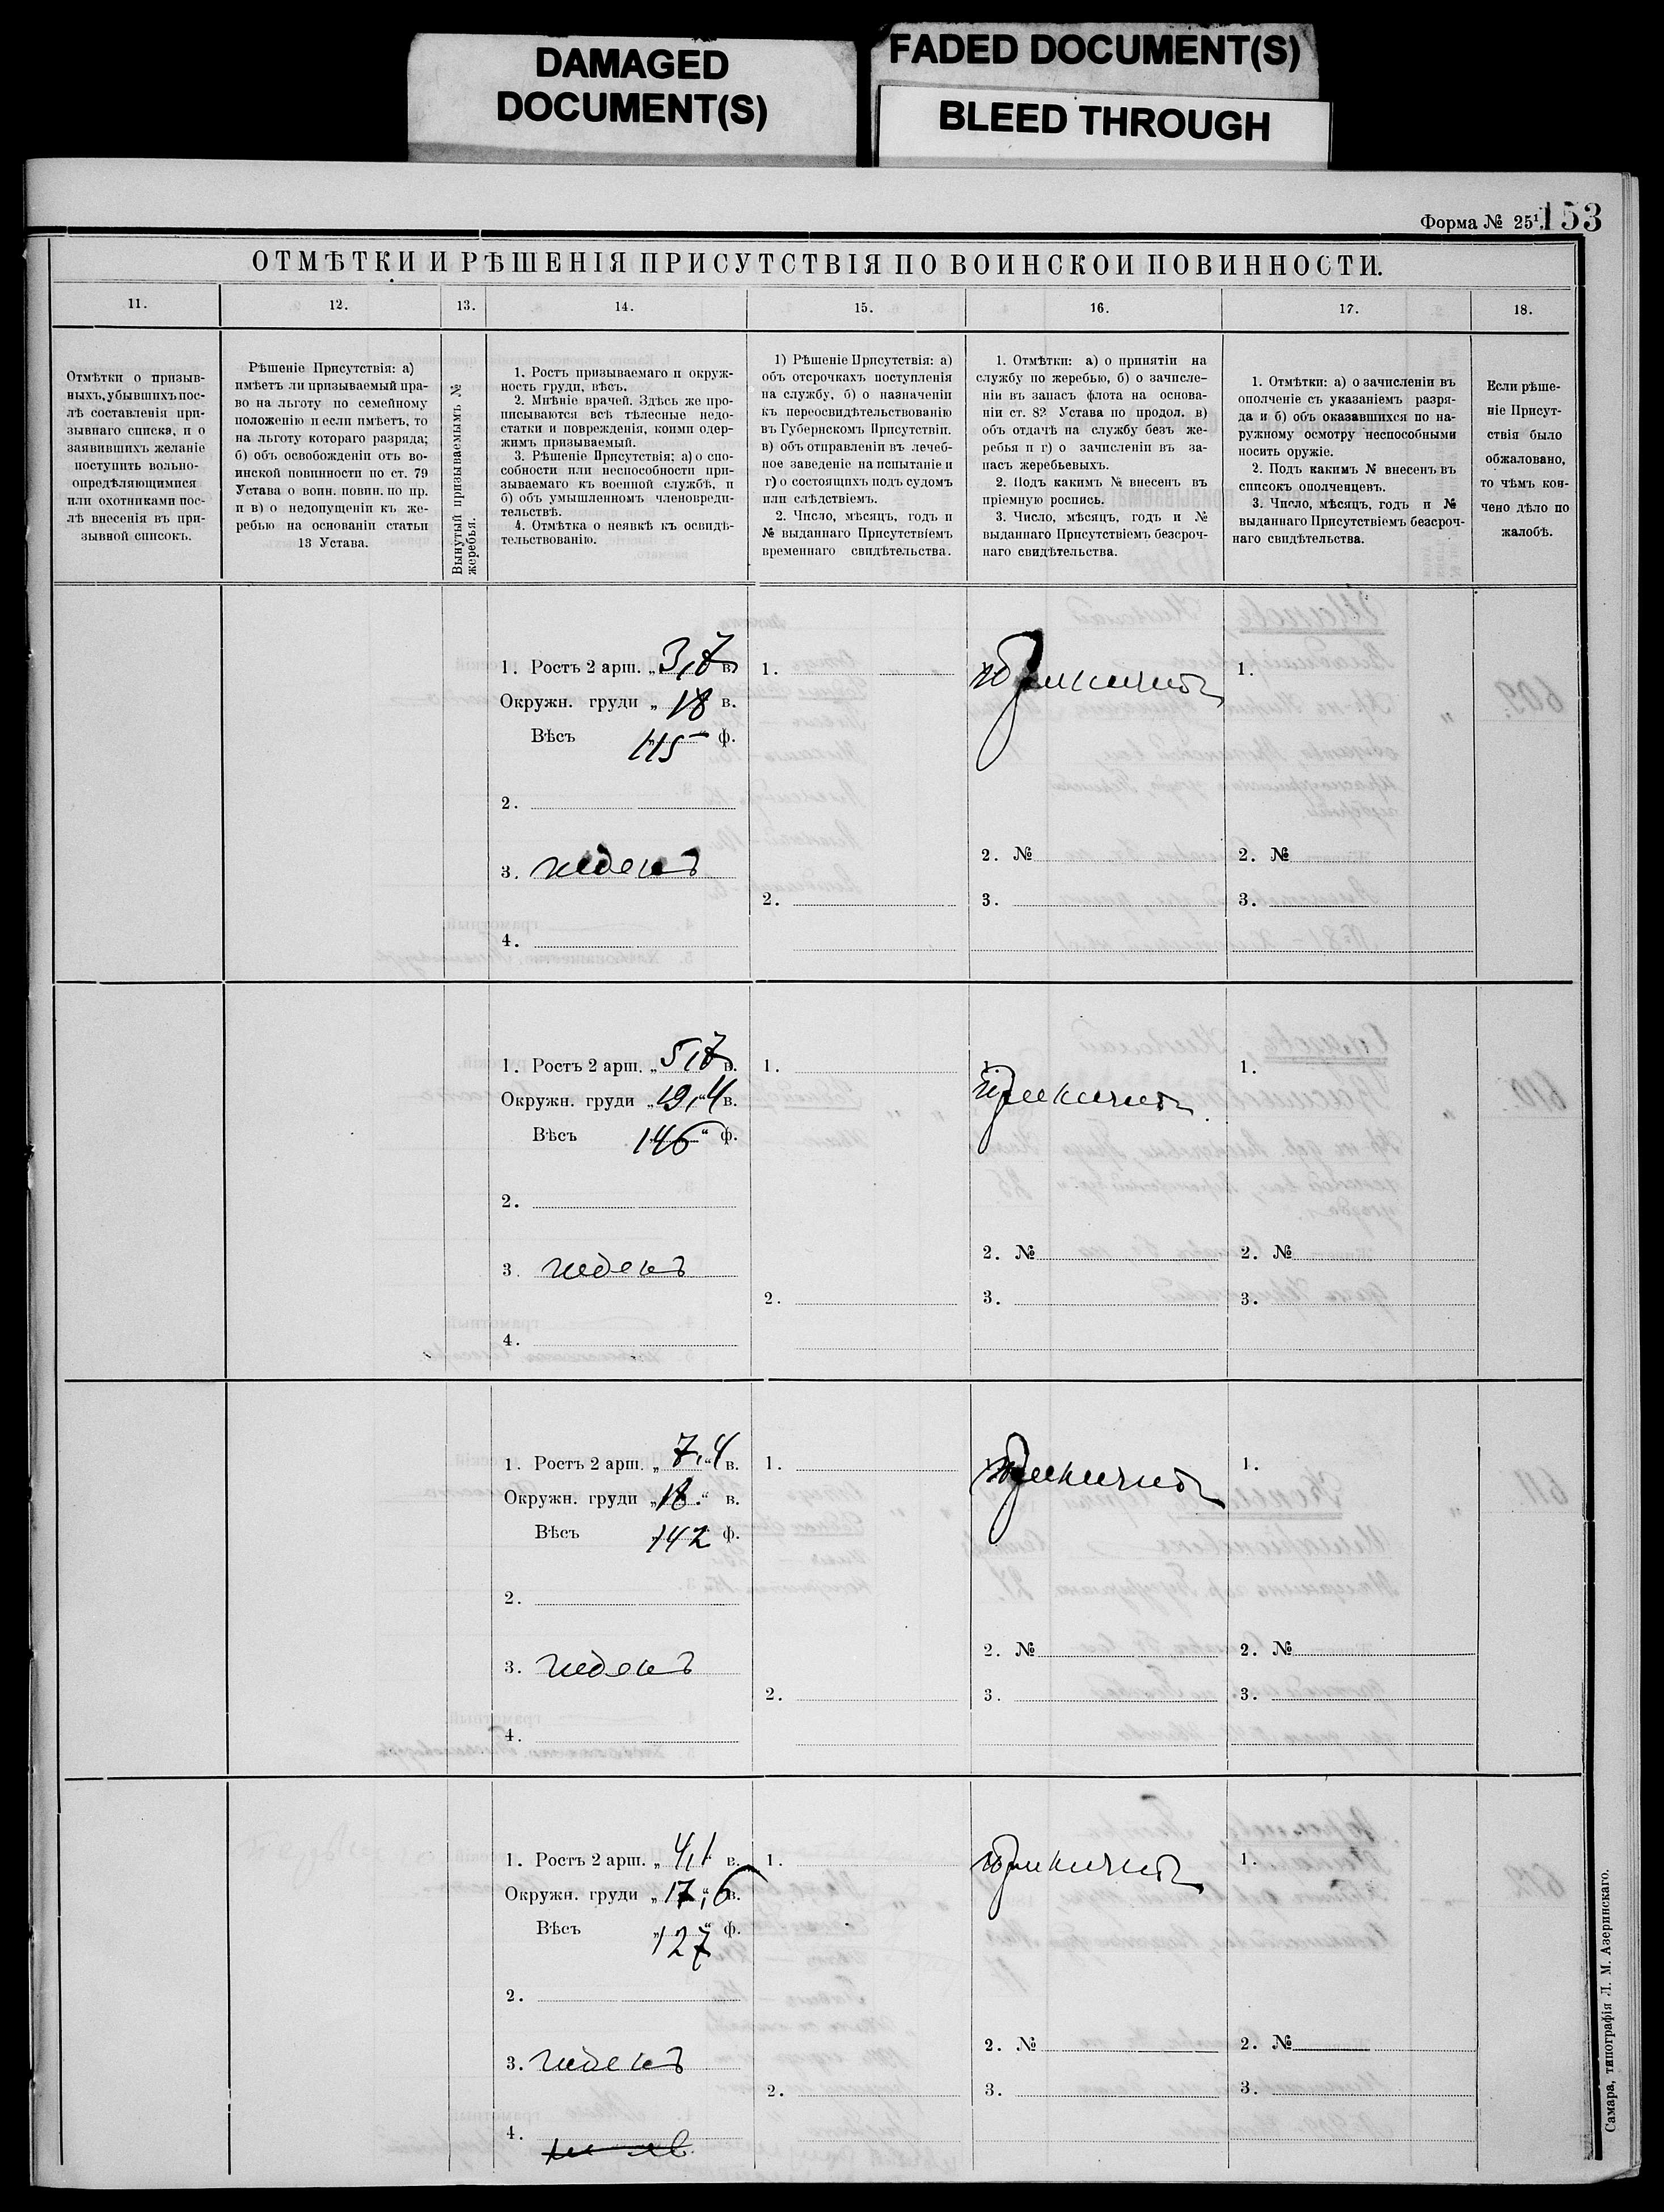 DAMAGED
DOCUMENT(S)
FADED DOCUMENT(S)
BLEED THROUGH
Форма № 25¹.
153
ОТМѢТКИ И РѢШЕНІЯ ПРИСУТСТВІЯ ПО ВОИНСКОЙ ПОВИННОСТИ.
11. 12. 13. 14. 15. 16. 17. 18.
Отмѣтки о призыв-
ныхъ, убывшихъ пос-
лѣ составленія при-
зывнаго списка, и о
заявившихъ желаніе
поступить вольно-
опредѣляющимися
или охотниками пос-
лѣ внесенія въ при-
зывной списокъ.
Рѣшеніе Присутствія: а)
имѣетъ ли призываемый пра-
во на льготу по семейному
положенію и если имѣетъ, то
на льготу котораго разряда;
б) объ освобожденіи отъ во-
инской повинности по ст. 79
Устава о воин. повин. по пр.
и в) о недопущеніи къ же-
ребью на основаніи статьи
13 Устава.
Вынутый призываемымъ №
жеребья.
1. Ростъ призываемаго и окруж-
ность груди, вѣсъ.
2. Мнѣніе врачей. Здѣсь же про-
писываются всѣ тѣлесные недо-
статки и поврежденія, коими одер-
жимъ призываемый.
3. Рѣшеніе Присутствія; а) о спо-
собности или неспособности при-
зываемаго къ военной службѣ, и
б) объ умышленномъ членовреди-
тельствѣ.
4. Отмѣтка о неявкѣ къ освидѣ-
тельствованію.
1) Рѣшеніе Присутствія: а)
объ отсрочкахъ поступленія
на службу, б) о назначеніи
къ переосвидѣтельствованію
въ Губернскомъ Присутствіи.
в) объ отправленіи въ лечеб-
ное заведеніе на испытаніе и
г) о состоящихъ подъ судомъ
или слѣдствіемъ.
2. Число, мѣсяцъ, годъ и
№ выданнаго Присутствіемъ
временнаго свидѣтельства.
1. Отмѣтки: а) о принятіи на
службу по жеребью, б) о зачисле-
ніи въ запасъ флота на основа-
ніи ст. 82 Устава по продол. в)
объ отдачѣ на службу безъ же-
ребья и г) о зачисленіи въ за-
пасъ жеребьевыхъ.
2. Подъ какимъ № внесенъ въ
пріемную роспись.
3. Число, мѣсяцъ, годъ и №
выданнаго Присутствіемъ безсроч-
наго свидѣтельства.
1. Отмѣтки: а) о зачисленіи въ
ополченіе съ указаніемъ разря-
да и б) объ оказавшихся по на-
ружному осмотру неспособными
носить оружіе.
2. Подъ какимъ № внесенъ въ
списокъ ополченцевъ.
3. Число, мѣсяцъ, годъ и №
выданнаго Присутствіемъ безсроч-
наго свидѣтельства.
Если рѣше-
ніе Присут-
ствія было
обжаловано,
то чѣмъ кон-
чено дѣло по
жалобѣ.
1. Ростъ 2 арш. „ 3,7 в. 1. 1.
Окружн. груди „ 18 в.
Вѣсъ 115 ф.
2.
2. № 2. №
3. годенъ
2. 3. 3.
4.
1. Ростъ 2 арш. „ 5,7 в. 1. 1.
Окружн. груди „ 19,4 в.
Вѣсъ 146 ф.
2.
2. № 2. №
3. годенъ
2. 3. 3.
4.
1. Ростъ 2 арш. „ 7,4 в. 1. 1.
Окружн. груди „ 18 в.
Вѣсъ 142 ф.
2.
2. № 2. №
3. годенъ
2. 3. 3.
4.
1. Ростъ 2 арш. „ 4,1 в. 1. 1.
Окружн. груди „ 17,6 в.
Вѣсъ „ 127 ф.
2.
2. № 2. №
3. годенъ
2. 3. 3.
4.
Самара, типографія Л. М. Азеринскаго.